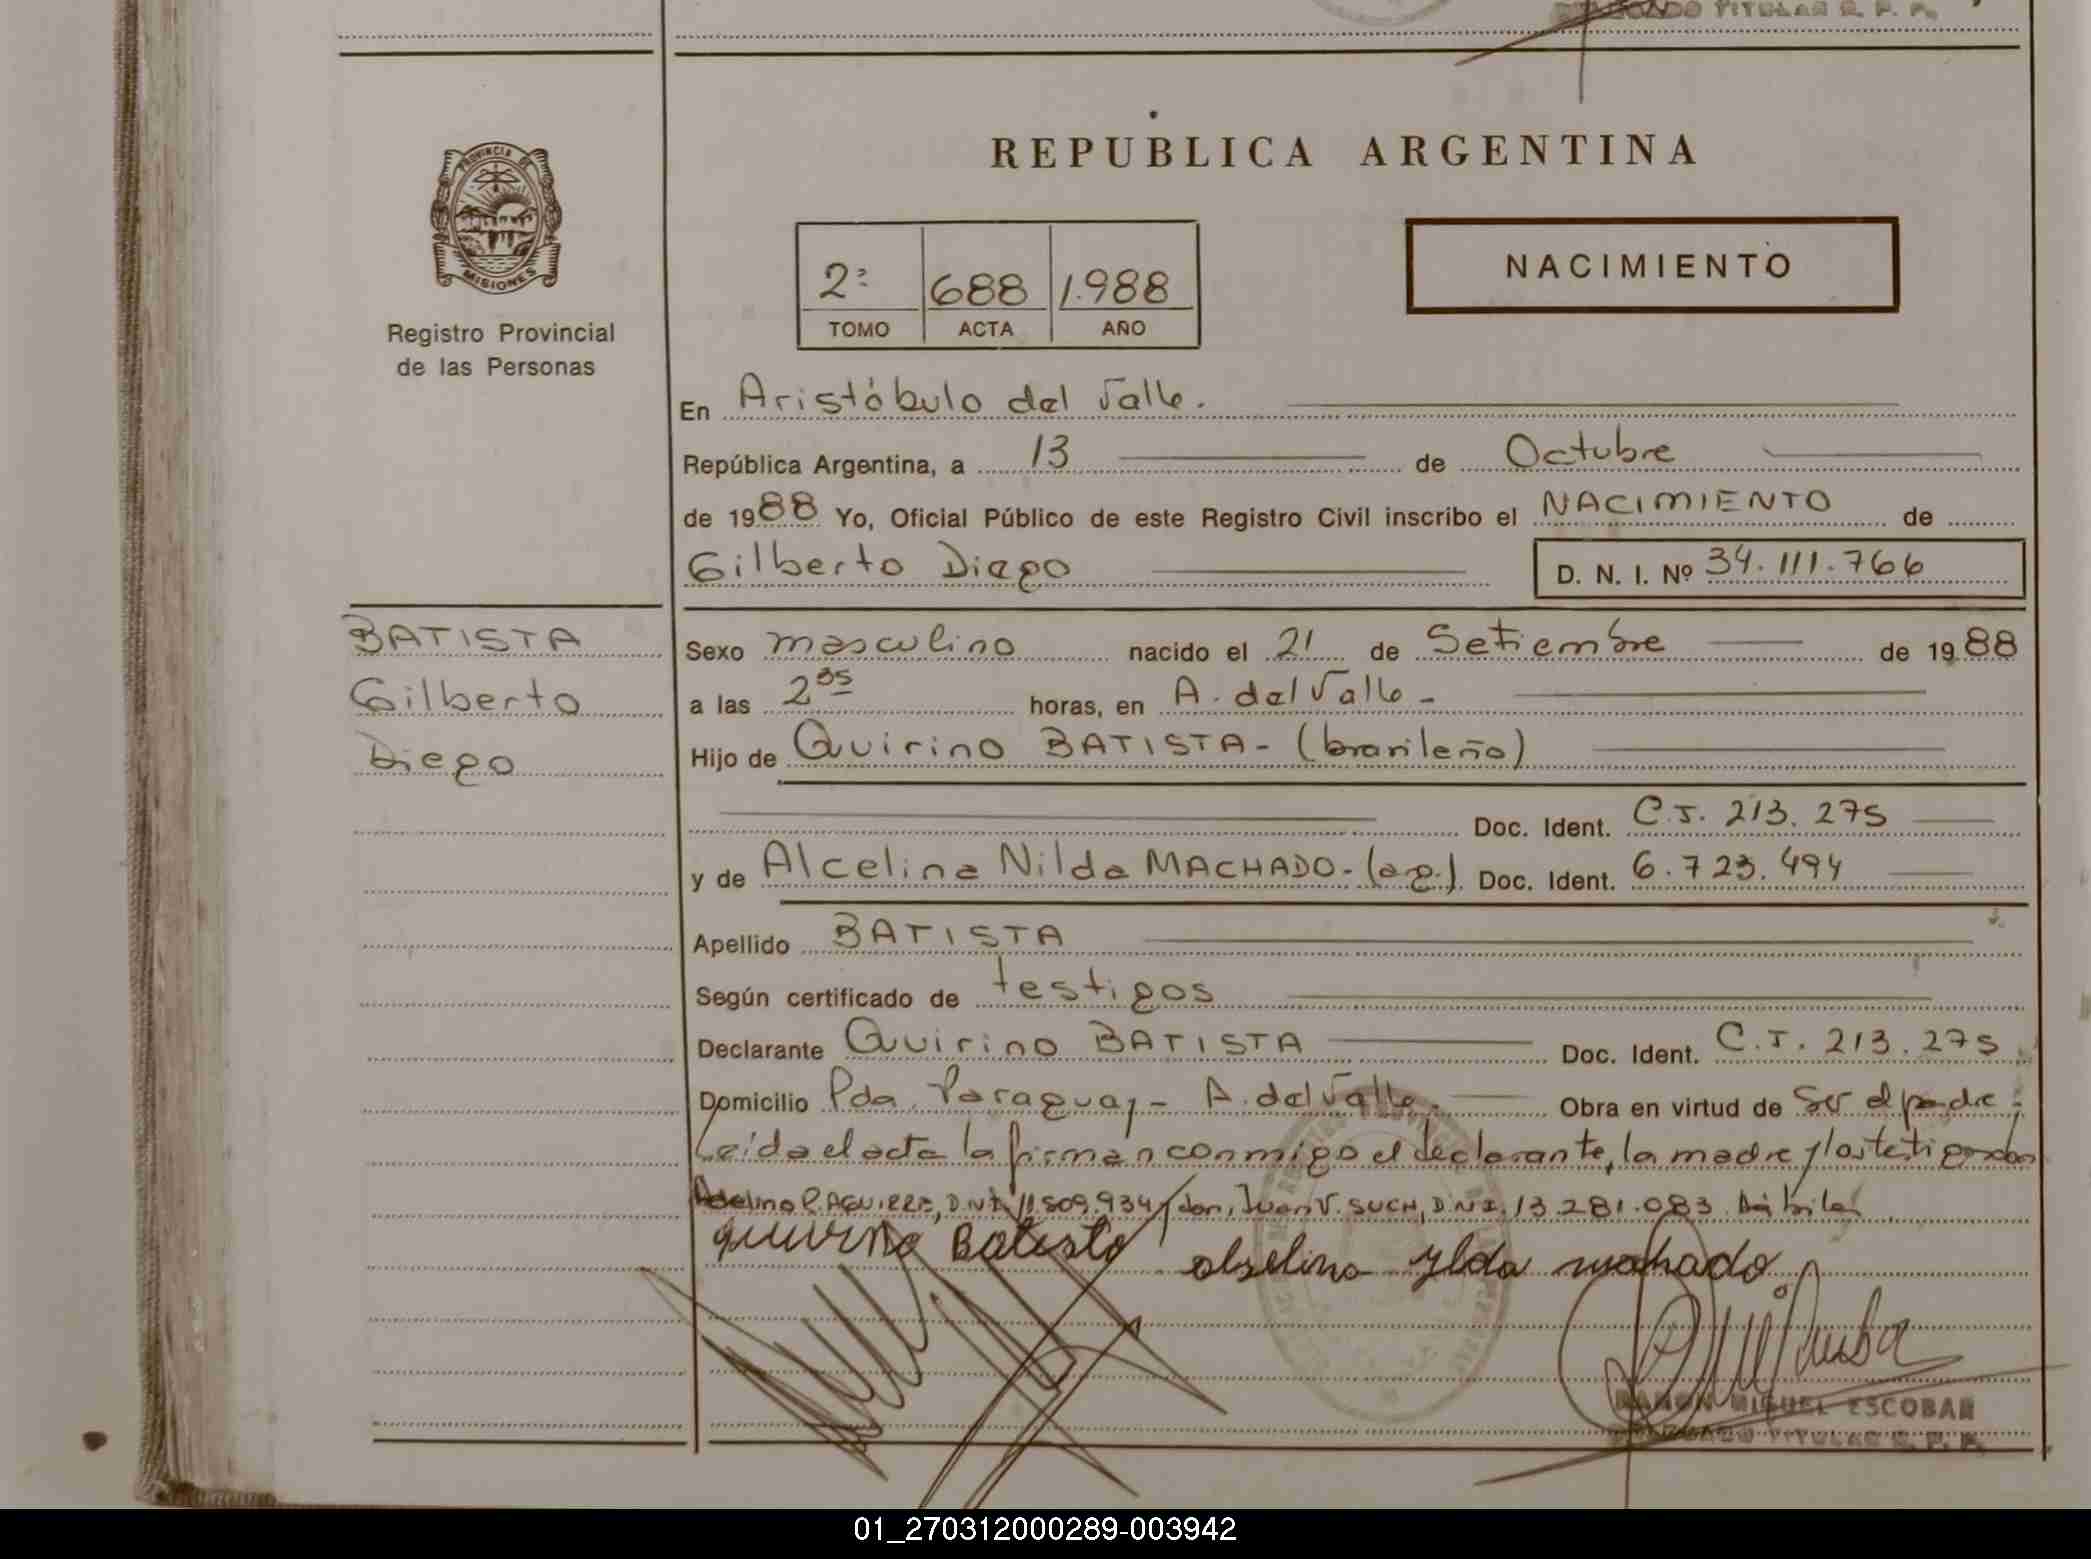 DELEGADO TITULAR R. P. P.
PROVINCIA DE
MISIONES
Registro Provincial
de las Personas
REPUBLICA ARGENTINA
NACIMIENTO
2º 688 1.988
TOMO ACTA AÑO
En Aristóbulo del Valle.
República Argentina, a 13 de Octubre
de 1988 Yo, Oficial Público de este Registro Civil inscribo el NACIMIENTO de
Gilberto Diego D. N. I. Nº 34.111.766
BATISTA
Gilberto
Diego
Sexo masculino nacido el 21 de Setiembre de 1988
a las 2 35 horas, en A. del Valle -
Hijo de Quirino BATISTA - (brasileño)
Doc. Ident. C.I. 213.275
y de Alcelina Nilda MACHADO - (arg.) Doc. Ident. 6.723.494
Apellido BATISTA
Según certificado de testigos
Declarante Quirino BATISTA Doc. Ident. C.I. 213.275
Domicilio Pda. Paraguay - A. del Valle. Obra en virtud de ser el padre;
Leída el acta la firman conmigo el declarante, la madre y los testigos don
Adelino R. AGUIRRE, D.N.I. 11.509.934 y don, Juan V. SUCH, D.N.I. 13.281.083. Hábiles
quirino Batista
alselina ylda machado
RAMON MIGUEL ESCOBAR
DELEGADO TITULAR R. P. P.
01_270312000289-003942